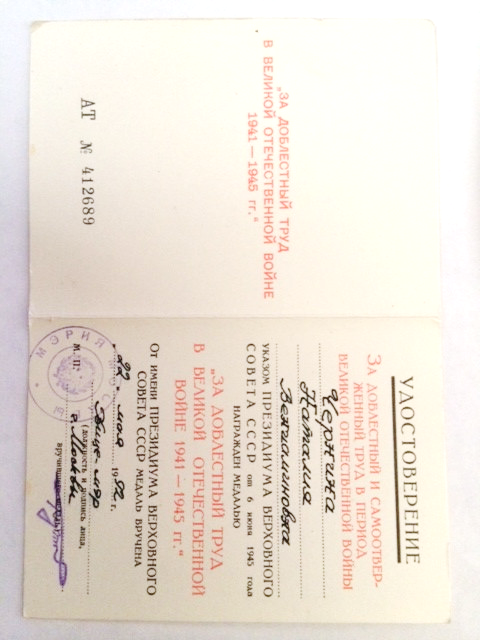 „ЗА ДОБЛЕСТНЫЙ ТРУД
В ВЕЛИКОЙ ОТЕЧЕСТВЕННОЙ ВОЙНЕ
1941 — 1945 гг.“
АТ № 412689
УДОСТОВЕРЕНИЕ
ЗА ДОБЛЕСТНЫЙ И САМООТВЕР-
ЖЕННЫЙ ТРУД В ПЕРИОД
ВЕЛИКОЙ ОТЕЧЕСТВЕННОЙ ВОЙНЫ
Чернина
Наталия
Вениаминовна
УКАЗОМ ПРЕЗИДИУМА ВЕРХОВНОГО
СОВЕТА СССР от 6 июня 1945 года
НАГРАЖДЕН МЕДАЛЬЮ
„ЗА ДОБЛЕСТНЫЙ ТРУД
В ВЕЛИКОЙ ОТЕЧЕСТВЕННОЙ
ВОЙНЕ 1941 — 1945 гг.“
ОТ ИМЕНИ ПРЕЗИДИУМА ВЕРХОВНОГО
СОВЕТА СССР МЕДАЛЬ ВРУЧЕНА
22 мая 1992 г.
МЭРИЯ
М. П.
Вице-мэр
(должность и подпись лица,
г. Москвы
вручившего медаль)